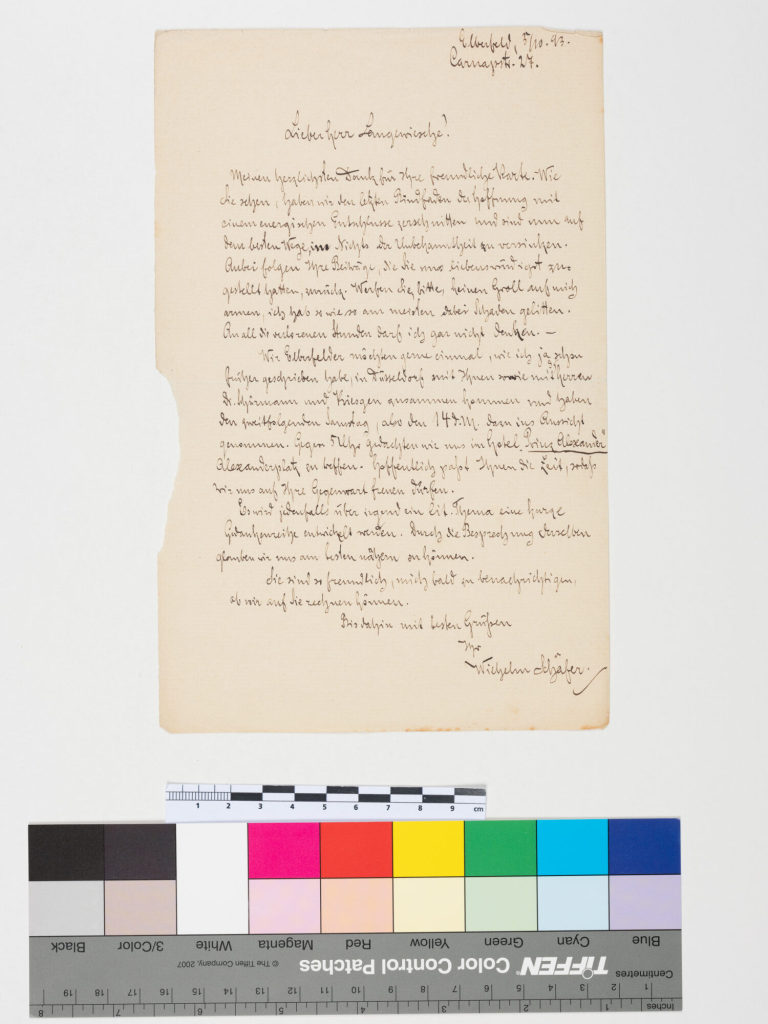 Elberfeld, 5/10.93.
Carnapstr. 27.
Lieber Herr Langewiesche!
Meinen herzlichsten Dank für Ihre freundliche Karte. Wie
Sie sehen, haben wir den letzten Bindfaden der Hoffnung mit
einem energischen Entschlusse zerschnitten und sind nun auf
dem besten Wege, ins Nichts der Unbekanntheit zu versinken.
Anbei folgen Ihre Beiträge, die Sie uns liebenswürdigst zu-
gestellt hatten, zurück. Werfen Sie, bitte, keinen Groll auf mich
armen, ich hab so wie so am meisten dabei Schaden gelitten.
An all die verlorenen Stunden darf ich gar nicht denken. —
Wir Elberfelder möchten gerne einmal, wie ich ja schon
früher geschrieben habe, in Düsseldorf mit Ihnen sowie mit Herren
Dr. Schürmann und Kriesgen zusammen kommen und haben
den zweitfolgenden Samstag, also den 14 d. M. dazu ins Aussicht
genommen. Gegen 5 Uhr gedachten wir uns im Hotel „Prinz Alexander"
Alexanderplatz zu treffen. Hoffentlich paßt Ihnen die Zeit, sodaß
wir uns auf Ihre Gegenwart freuen dürfen.
Es wird jedenfalls über irgend ein lit. Thema eine kurze
Gedankenreihe entwickelt werden. Durch die Besprechung derselben
glauben wir uns am besten nähern zu können.
Sie sind so freundlich, mich bald zu benachrichtigen,
ob wir auf Sie rechnen können.
Bis dahin mit besten Grüßen
Ihr
Wilhelm Schäfer.
1 2 3 4 5 6 7 8 9 cm
Blue Cyan Green Yellow Red Magenta White 3/Color Black
TIFFEN Color Control Patches © The Tiffen Company, 2007
Centimetres
1 2 3 4 5 6 7 8 9 10 11 12 13 14 15 16 17 18 19
Inches
1 2 3 4 5 6 7 8